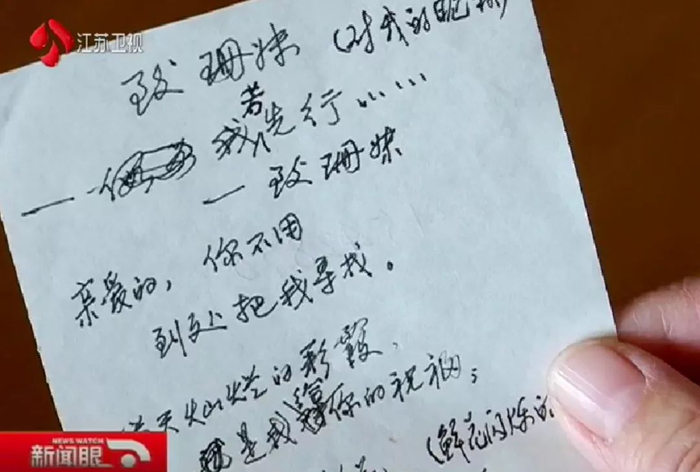 江苏卫视
致珊妹(对我的昵称
若
我先行……
—致珊妹
亲爱的,你不用
到处把我寻找。
天灿烂的彩霞,
是我 你的祝福;
(鲜花闪烁的
NEWS WATCH
新闻眼